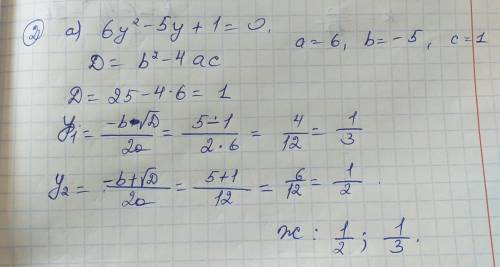 ② a) 6y² - 5y + 1 = 0.
a = 6, b = -5, c = 1
D = b² - 4ac
D = 25 - 4·6 = 1
y₁ = (-b-√D)/2a = (5-1)/(2·6) = 4/12 = 1/3
y₂ = (-b+√D)/2a = (5+1)/12 = 6/12 = 1/2.
Ж: 1/2; 1/3.